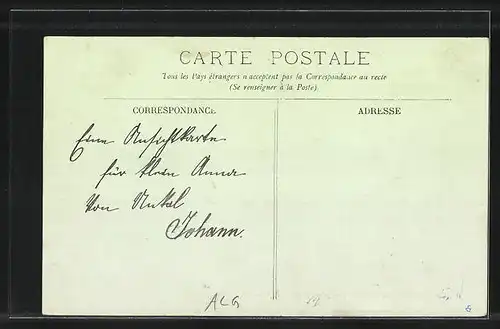 CARTE POSTALE
Tous les Pays étrangers n'acceptent pas la Correspondance au recto
(Se renseigner à la Poste)
CORRESPONDANCE
ADRESSE
Eine Ansichtkarte
für klein Anna
von Unkel
Johann.
ALG